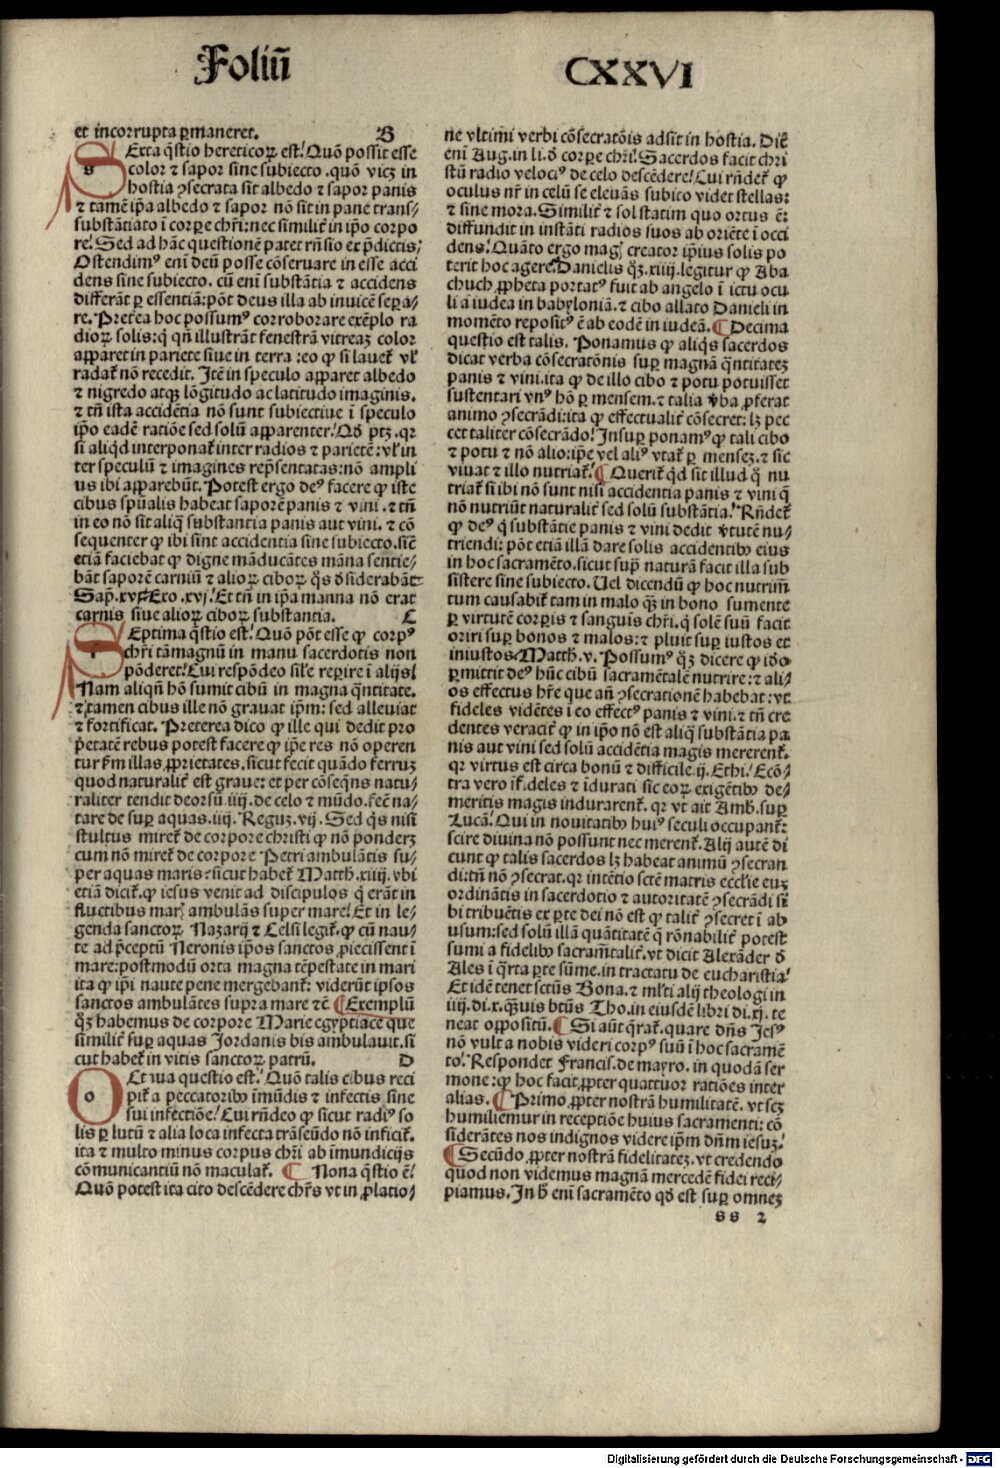 Foliū CXXVI
et incorrupta ꝑmaneret. B
SExta q̄stio hereticoꝝ est! Quō possit esse
color ⁊ sapor sine subiecto. quō vicꝫ in
hostia ꝯsecrata sit albedo ⁊ sapor panis
⁊ tamē ip̄a albedo ⁊ sapor nō sit in pane trans/
substātiato ī corꝑe chr̄i: nec similit̄ in ip̄o corpo
re! Sed ad hāc questionē patet rn̄sio ex p̄dictis;
Ostendimꝰ enī deū posse cōseruare in esse acci
dens sine subiecto. cū enī substātia ⁊ accidens
differāt ꝑ essentiā: pōt deus illa ab inuicē seꝑa/
re. Preterea hoc possumꝰ corroborare exēplo ra
dioꝝ solis: q̄ qn̄ illustrāt fenestrā vitreaꝫ color
apparet in pariete siue in terra: eo ꝙ si lauet̄ vl̄
radat̄ nō recedit. Itē in speculo apparet albedo
⁊ nigredo atqꝫ lōgitudo ac latitudo imaginis.
⁊ tn̄ ista accidētia nō sunt subiectiue ī speculo
ip̄o eadē ratiōe sed solū apparenter! Qd̄ ptꝫ. qꝛ
si aliqd interponat̄ inter radios ⁊ parietē: vl̄ in
ter speculū ⁊ imagines repn̄sentatas: nō ampli
us ibi apparebūt. Potest ergo deꝰ facere ꝙ iste
cibus spūalis habeat saporē panis ⁊ vini. ⁊ tn̄
in eo nō sit aliq̄ substantia panis aut vini. ⁊ cō
sequenter ꝙ ibi sint accidentia sine subiecto. sic̄
etiā faciebat ꝙ digne māducātes māna sentie/
bāt saporē carniū ⁊ alioꝝ ciboꝝ q̄s dsiderabāt
Sap̄. xvj. Exo. xvj. Et tn̄ in ip̄a manna nō erat
carnis siue alioꝝ ciboꝝ substantia. C
SEptima q̄stio est! Quō pōt esse ꝙ corpꝰ
chr̄i tāmagnū in manu sacerdotis non
pōderet! Cui respōdeo sil̄e reꝑire ī alijs!
Nam aliqn̄ hō sumit cibū in magna q̄ntitate.
⁊ tamen cibus ille nō grauat ip̄m: sed alleuiat
⁊ fortificat. Preterea dico ꝙ ille qui dedit pro
p̄etatē rebus potest facere ꝙ ip̄e res nō operen
tur ẜm illas ꝓprietates. sicut fecit quādo ferruꝫ
quod naturalit̄ est graue: et per cōseqn̄s natu/
raliter tendit deorsū. iiij. de celo ⁊ mūdo. fec̄ na/
tare de suꝑ aquas. iiij. Reguꝫ. vij. Sed q̄s nisi
stultus miret̄ de corpore christi ꝙ nō ponderꝫ
cum nō miret̄ de corpore Petri ambulātis su/
per aquas maris: sicut habet̄ Matth. xiiij. vbi
etiā dicit̄. ꝙ iesus venit ad discipulos q̄ erāt in
fluctibus marꝭ ambulās super mare! Et in le/
genda sanctoꝝ Nazarij ⁊ Celsi legit̄. ꝙ cū nau/
te ad p̄ceptū Neronis ip̄os sanctos ꝓiecissent ī
mare: postmodū orta magna tēpestate in mari
ita ꝙ ip̄i naute pene mergebant̄: viderūt ipsos
sanctos ambulātes supra mare ⁊cē ¶ Exemplū
q̄ꝫ habemus de corpore Marie egyptiace que
similit̄ suꝑ aquas Jordanis bis ambulauit. si
cut habet̄ in vitis sanctoꝝ patrū. D
OCtaua questio est! Quō talis cibus reci
pit̄ a peccatoribꝰ īmūdis ⁊ infectis sine
sui infectiōe! Cui rn̄deo ꝙ sicut radiꝰ so
lis ꝑ lutū ⁊ alia loca infecta trāseūdo nō inficit̄.
ita ⁊ multo minus corpus chr̄i ab īmundicijs
cōmunicantiū nō maculat̄. ¶ Nona q̄stio ē!
Quō potest ita cito descēdere chr̄s vt in ꝓlatio/
ne vltimi verbi cōsecratōis adsit in hostia. Dic̄
enī Aug. in li. d̄ corꝑe chr̄i! Sacerdos facit chri
stū radio velociꝰ de celo descēdere! Cui rn̄det̄ ꝙ
oculus nr̄ in celū se eleuās subito videt stellas:
⁊ sine mora. Similit̄ ⁊ sol statim quo ortus ē:
diffundit in instāti radios suos ab oriēte ī occi
dens! Quāto ergo magꝭ creator ip̄ius solis po
terit hoc agere! Danielis q̄ꝫ. xiiij. legitur ꝙ Aba
chuch ꝓpheta portatꝰ fuit ab angelo ī ictu ocu
li a iudea in babyloniā. ⁊ cibo allato Danieli in
momēto repositꝰ ē ab eodē in iudeā. ¶ Decima
questio est talis. Ponamus ꝙ aliq̄s sacerdos
dicat verba cōsecratōnis suꝑ magnā q̄ntitateꝫ
panis ⁊ vini. ita ꝙ de illo cibo ⁊ potu potuisset
sustentari vnꝰ hō ꝑ mensem. ⁊ talia v̄ba ꝓferat
animo ꝯsecrādi: ita ꝙ effectualit̄ cōsecret: lꝫ pec
cet taliter cōsecrādo! Insuꝑ ponamꝰ ꝙ tali cibo
⁊ potu ⁊ nō alio: ip̄e vel aliꝰ vtat̄ ꝑ menseꝫ. ⁊ sic
viuat ⁊ illo nutriat̄. ¶ Querit̄ qd sit illud q̄ nu
triat̄ si ibi nō sunt nisi accidentia panis ⁊ vini q̄
nō nutriūt naturalit̄ sed solū substātia! Rn̄det̄
ꝙ deꝰ q̄ substātie panis ⁊ vini dedit v̄tutē nu/
triendi: pōt etiā illā dare solis accidentibꝰ eius
in hoc sacramēto. sicut sup̄ naturā facit illa sub
sistere sine subiecto. Uel dicendū ꝙ hoc nutrim̄
tum causabit̄ tam in malo q̄ꝫ in bono sumente
ꝑ virtutē corꝑis ⁊ sanguis chr̄i. q̄ solē suū facit
oriri suꝑ bonos ⁊ malos: ⁊ pluit suꝑ iustos et
iniustos. Matth. v. Possumꝰ q̄ꝫ dicere ꝙ idō
ꝑmittit deꝰ hūc cibū sacramētalē nutrire: ⁊ ali/
os effectus hr̄e que an̄ ꝯsecrationē habebat: vt
fideles vidētes ī eo effectꝰ panis ⁊ vini. ⁊ tn̄ cre
dentes veracit̄ ꝙ in ip̄o nō est aliq̄ substātia pa
nis aut vini sed solū accidētia magis mererent̄.
qꝛ virtus est circa bonū ⁊ difficile. ij. Ethi. Ecō/
tra vero īf̄ deles ⁊ īdurati sic eoꝝ exigētibꝰ de/
meritis magis indurarent̄. qꝛ vt ait Amb. suꝑ
Lucā! Qui in nouitatibꝰ huiꝰ seculi occupant̄:
scire diuina nō possunt nec merent̄. Alij autē di
cunt ꝙ talis sacerdos lꝫ habeat animū ꝯsecran
di: tn̄ nō ꝯsecrat. qꝛ intētio sctē matris ecclīe euꝫ
ordinātis in sacerdotio ⁊ autoritatē ꝯsecrādi si
bi tribuētis ex ꝑte dei nō est ꝙ talit̄ ꝯsecret ī ab
usum: sed solū illā quātitatē q̄ rōnabilit̄ potest
sumi a fidelibꝰ sacram̄talit̄. vt dicit Alexāder d̄
Ales ī q̄rta ꝑte sūme. in tractatu de eucharistia!
Et idē tenet sctūs Bona. ⁊ ml̄ti alij theologi in
iiij. di. x. q̄uis btūs Tho. in eiusdē libri di. xj. te
neat oppositū. ¶ Si aūt q̄rat̄. quare dn̄s Jesꝰ
nō vult a nobis videri corpꝰ suū ī hoc sacramē
to! Respondet Francis. de mayro. in quodā ser
mone: ꝙ hoc facit ꝓpter quattuor ratiōes inter
alias. ¶ Primo ꝓpter nostrā humilitatē. vt scꝫ
humiliemur in receptiōe huius sacramenti: cō
siderātes nos indignos videre ip̄m dn̄m iesuꝫ!
¶ Secūdo ꝓpter nostrā fidelitateꝫ. vt credendo
quod non videmus magnā mercedē fidei reci/
piamus. In h̄ enī sacramēto qd̄ est suꝑ omneꝫ
ss 2
Digitalisierung gefördert durch die Deutsche Forschungsgemeinschaft - DFG